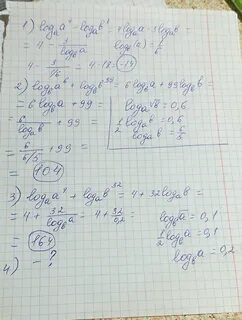 1) log_a a⁴ - log_a b³ = 4log_a a - 3log_a b =
= 4 - 3/log_b a
log_b a = 1/6
4 - 3/(1/6) = 4 - 18 = -14
2) log_a a⁶ + log_a b⁹⁹ = 6log_a a + 99log_a b =
= 6log_a b + 99 =
6/log_a b + 99 =
log_a √b = 0,6
1/2 log_a b = 0,6
log_a b = 6/5
= 6/(6/5) + 99 =
= 104
3) log_a a⁴ + log_a b³² = 4 + 32log_a b =
= 4 + 32/log_b a = 4 + 32/0,2 =
= 164
log_b √a = 0,1
1/2 log_b a = 0,1
log_b a = 0,2
4) - ?